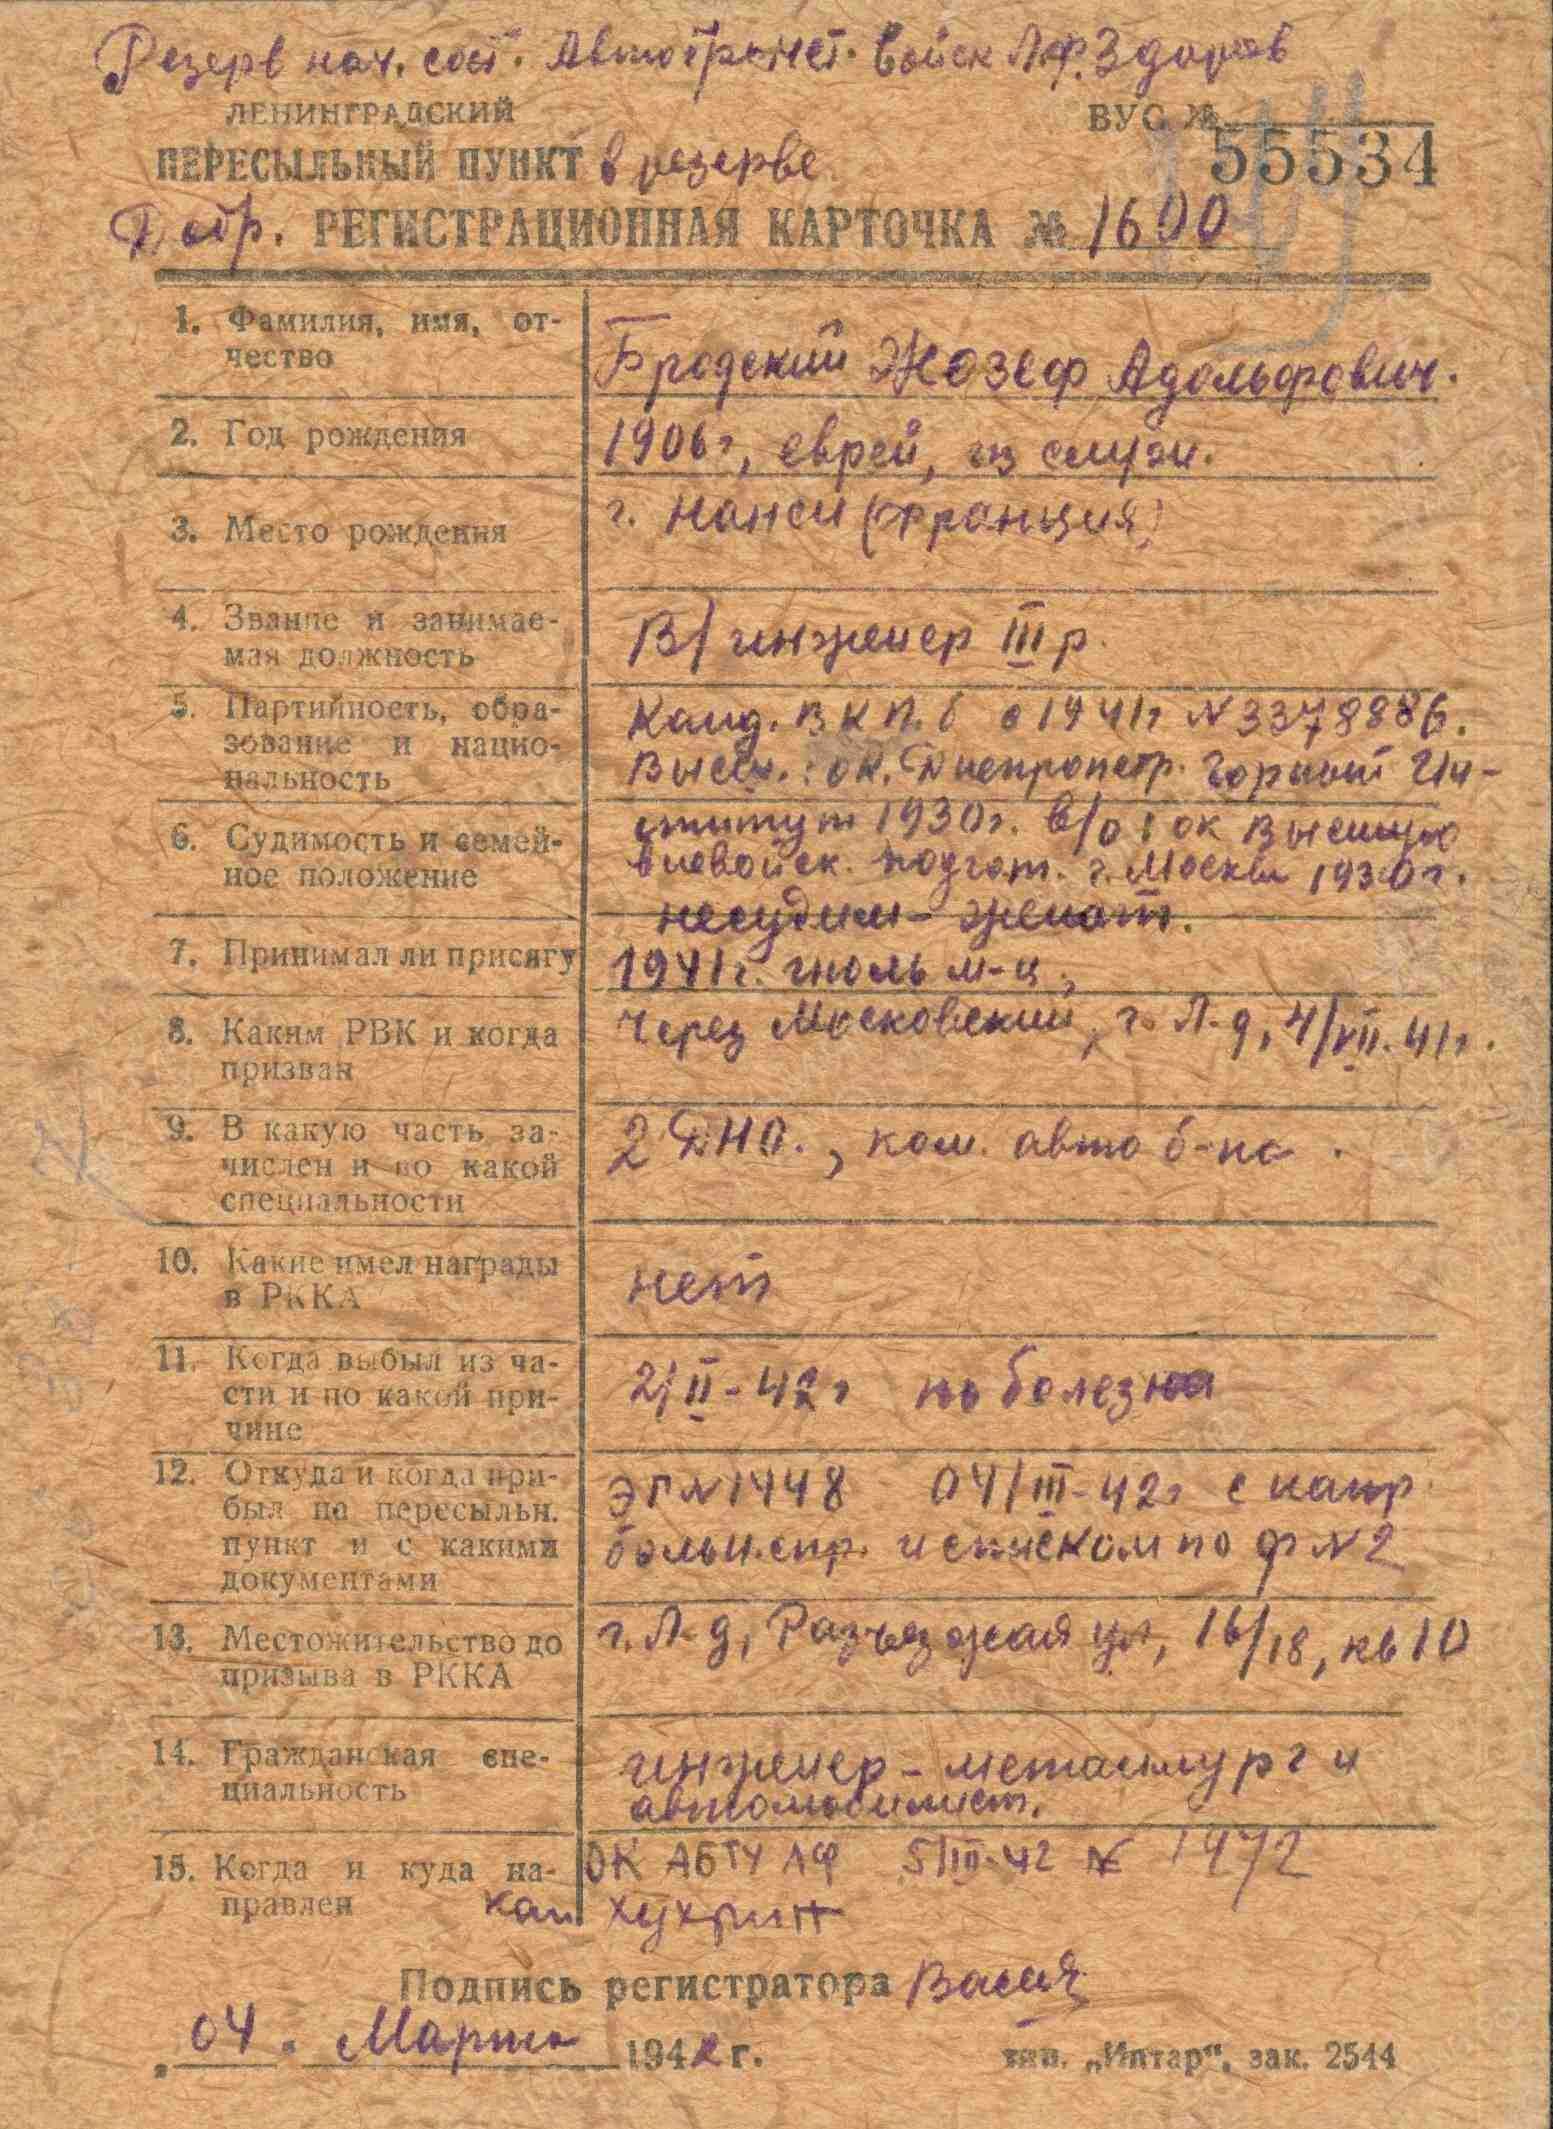 Резерв нач. сост. Автотрансп. войск Л.Ф. Здоров
ЛЕНИНГРАДСКИЙ
ВУС №
ПЕРЕСЫЛЬНЫЙ ПУНКТ в резерве
55534
РЕГИСТРАЦИОННАЯ КАРТОЧКА № 1600
1. Фамилия, имя, от-
чество
Бродский Жозеф Адольфович.
2. Год рождения
1906 г, еврей, из служ.
3. Место рождения
г. Нанси (Франция)
4. Звание и занимае-
мая должность
В/инженер III р.
5. Партийность, обра-
зование и нацио-
нальность
Канд. ВКП.б с 1941 г N 3378886.
Высш.: ок. Днепропетр. Горный Ин-
6. Судимость и семей-
ное положение
ститут 1930 г. в/о: ок высшую
вневойск. подгот. г. Москва 1930 г.
несудим - женат.
7. Принимал ли присягу
1941 г. июль м-ц,
8. Каким РВК и когда
призван
Через Московский, г. Л-д, 4/VII.41 г.
9. В какую часть за-
числен и по какой
специальности
2 ДНО., ком. авто б-на.
10. Какие имел награды
в РККА
нет
11. Когда выбыл из ча-
сти и по какой при-
чине
2/II-42 г по болезни
12. Откуда и когда при-
был на пересыльн.
пункт и с какими
документами
ЭГ N 1448 04/III-42 г с напр.
больн. спр. и списком по ф N 2
13. Местожительство до
призыва в РККА
г. Л-д, Разъезжая ул, 16/18, кв 10
14. Гражданская спе-
циальность
инженер - металлург и
автомобилист.
15. Когда и куда на-
правлен
ОК АБТУ ЛФ 5/III-42 № 1972
кап Хухрин
Подпись регистратора
„04. Марта 1942 г.
тип. „Интар“, зак. 2544